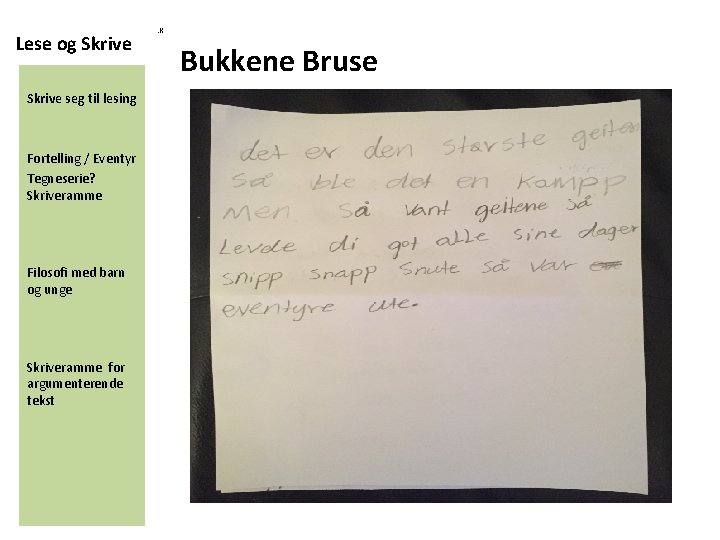 Lese og Skrive
.R
Bukkene Bruse
Skrive seg til lesing
Fortelling / Eventyr
Tegneserie?
Skriveramme
Filosofi med barn
og unge
Skriveramme for
argumenterende
tekst
det er den største geiten
Så ble det en kampp
men så vant geitene så
Levde di got alle sine dager
snipp snapp snute så var
eventyre ute.